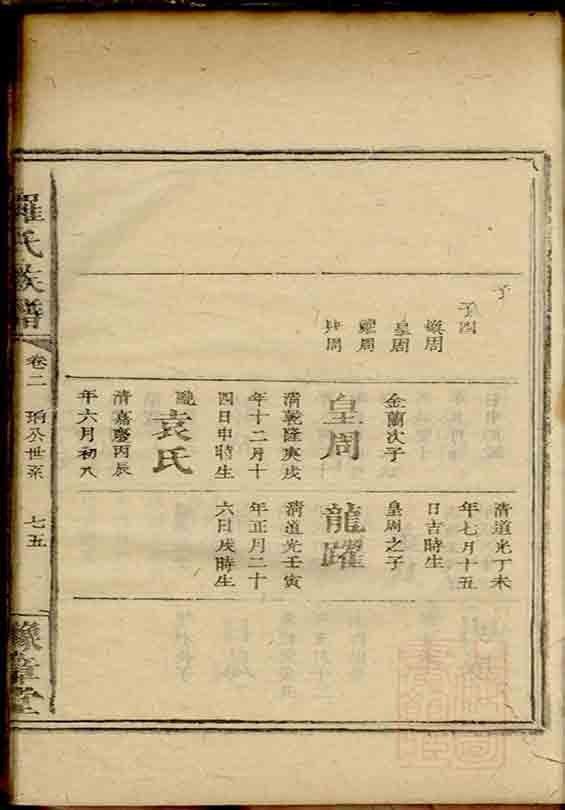 子
子四
皇周
耀周
金蘭次子
皇周
清乾隆庚戌
年十二月十
四日申時生
袁氏
清嘉慶丙辰
年六月初八
清道光丁未
年七月十五
日吉時生
皇周之子
龍躍
清道光壬寅
年正月二十
六日戌時生
羅氏族譜
卷二
公世系
七五
豫章堂